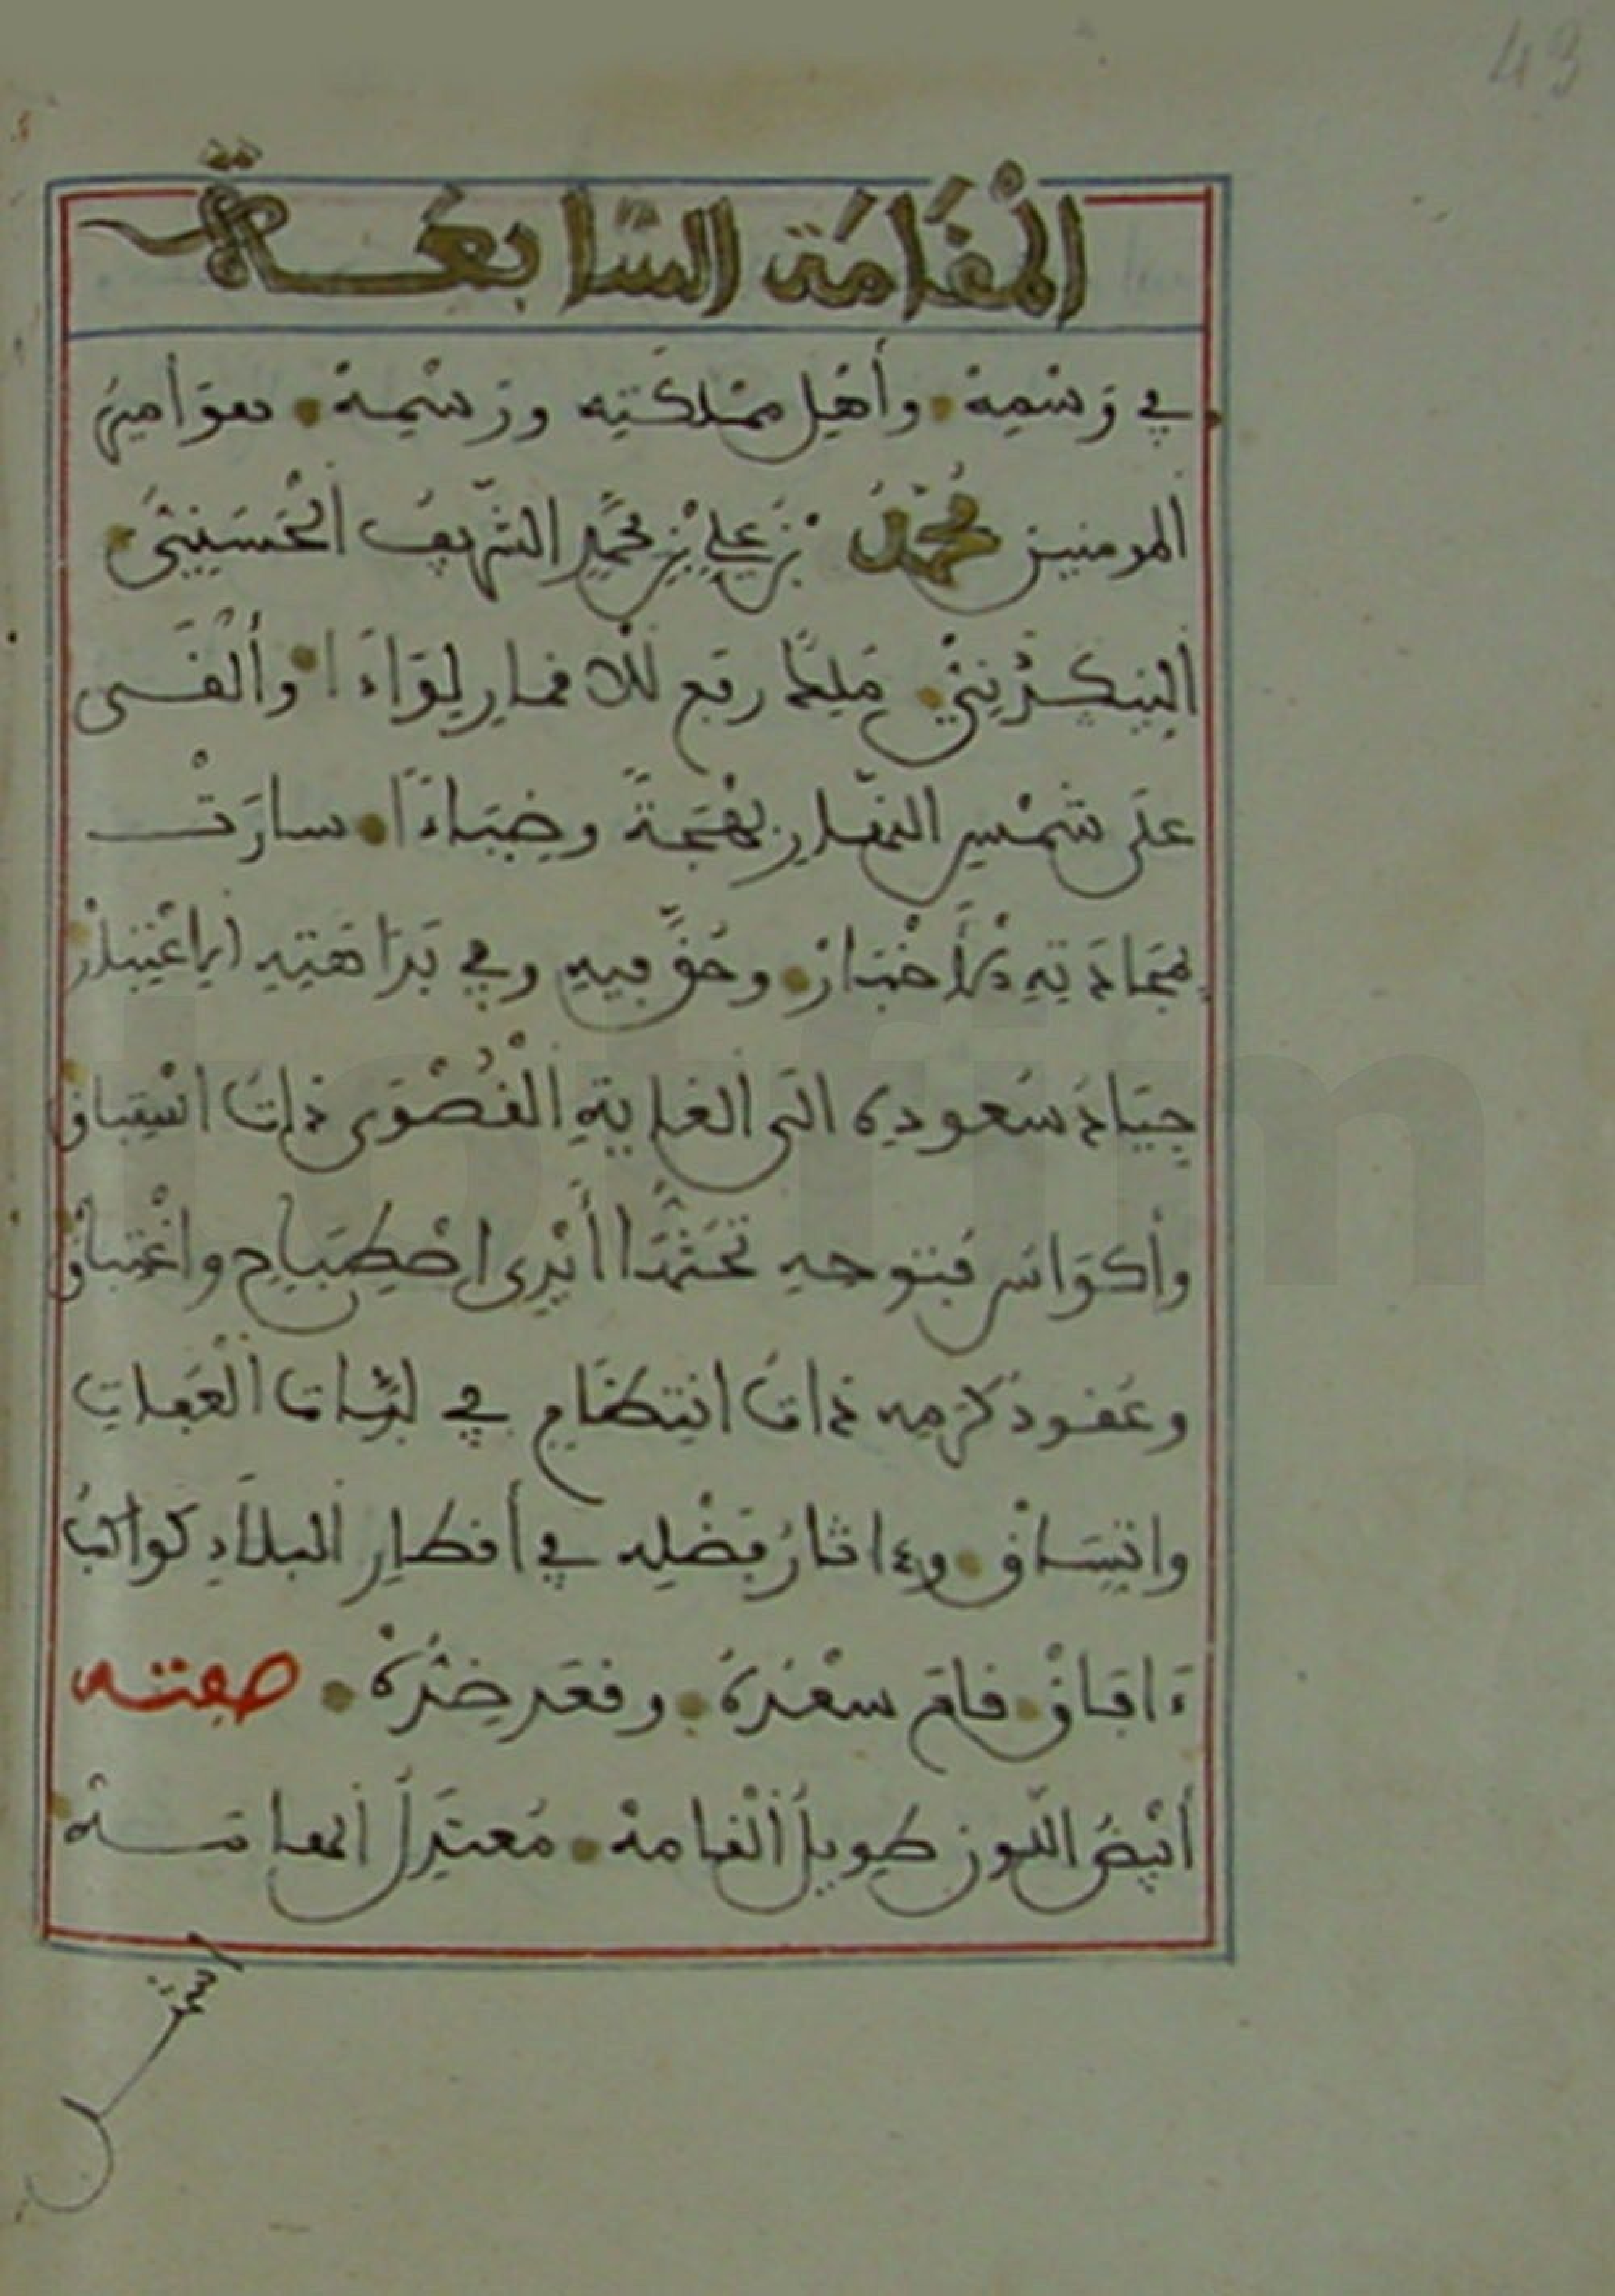 43
المقامة السابعة
في وَسْمِهْ وأهل مملكته ورَسْمِهْ هو أمير
المومنين محمد بن علي بن محمد الشريف الحسيني
الينبكرني لما رفع للافمار لِوَاءَا وألقى
على شمس النهار بهجة وضِيَاءَا سارَتْ
بمَجادته الأخبار وحُقَّ فيه وفي بَدَاهَتِهِ الاعتبار
جِيَادُ سُعوده الى الغاية القُصْوَى ذات استباق
وأكواس فتوحه تحثها أيدي اصْطِبَاح واغْتباق
وعقود كرمه ذات انتظام في لبّات العَفات
واتِّسَاق وءاثارُ فَضْلِه في أقطار البلاد كواكب
ءافاق قام سعْدُهْ وقعد ضِدُّهْ صفته
أبْيَضُ اللّون طويل القامهْ مُعتدل الهامـة
أشمّ